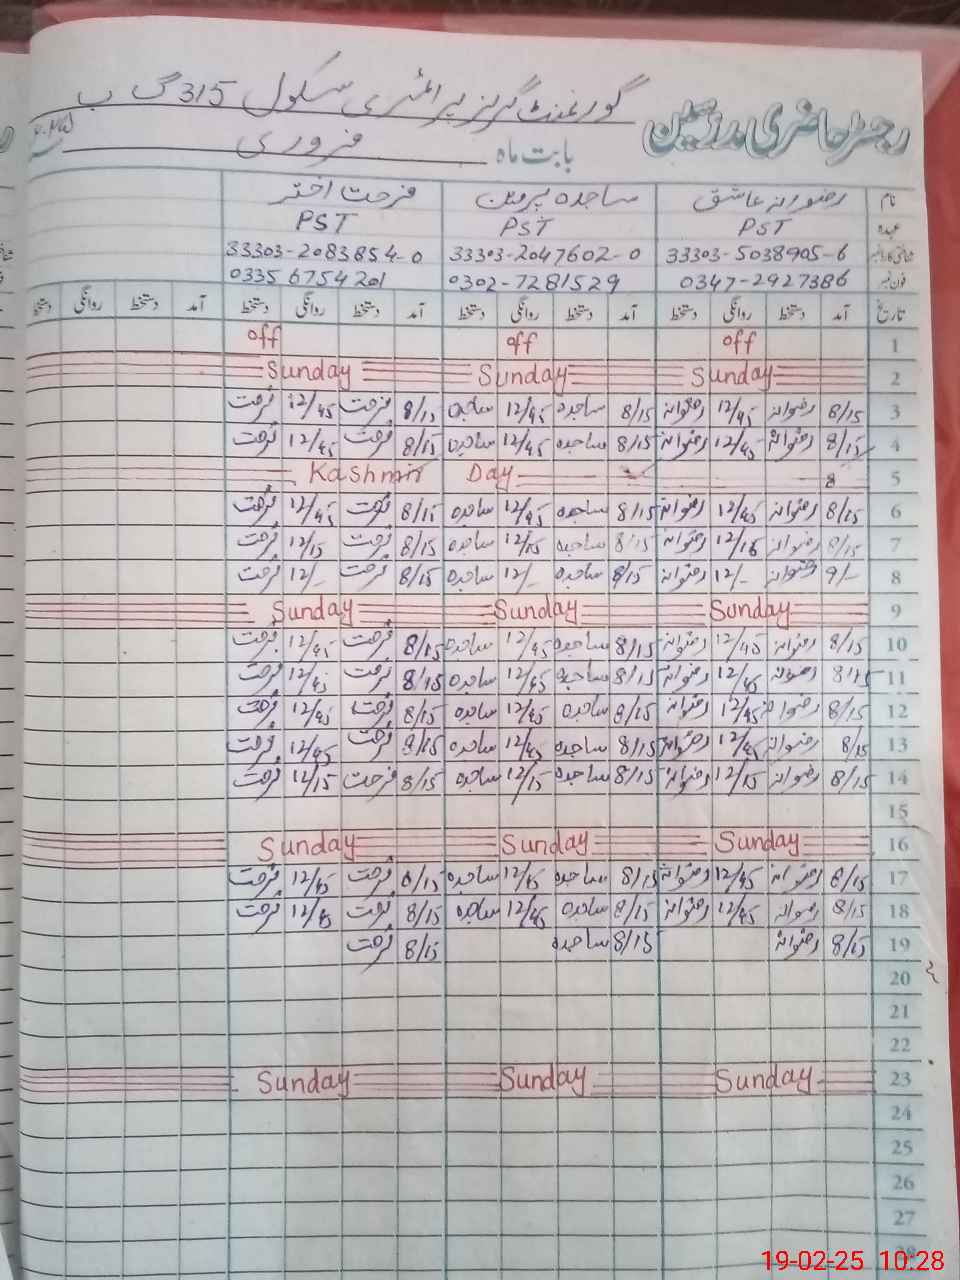 گورنمنٹ گرلز پرائمری سکول 315 گ ب
رجسٹر حاضری مدرسین
بابت ماہ فروری
نام رضوانہ عاشق ساجدہ پروین فرحت اختر
عہدہ PST PST PST
شناختی کارڈ نمبر 33303-5038905-6 33303-2047602-0 33303-2083854-0
فون نمبر 0347-2927386 0302-7281529 0335 6754201
تاریخ آمد دستخط روانگی دستخط آمد دستخط روانگی دستخط آمد دستخط روانگی دستخط آمد دستخط روانگی دستخط
1 off off off
2 Sunday Sunday Sunday
3 8/15 رضوانہ 12/45 رضوانہ 8/15 ساجدہ 12/45 ساجدہ 8/15 فرحت 12/45 فرحت
4 8/15 رضوانہ 12/45 رضوانہ 8/15 ساجدہ 12/45 ساجدہ 8/15 فرحت 12/45 فرحت
5 8 Kashmir Day
6 8/15 رضوانہ 12/45 رضوانہ 8/15 ساجدہ 12/45 ساجدہ 8/15 فرحت 12/45 فرحت
7 8/15 رضوانہ 12/15 رضوانہ 8/15 ساجدہ 12/15 ساجدہ 8/15 فرحت 12/15 فرحت
8 9/- رضوانہ 12/- رضوانہ 8/15 ساجدہ 12/- ساجدہ 8/15 فرحت 12/- فرحت
9 Sunday Sunday Sunday
10 8/15 رضوانہ 12/45 رضوانہ 8/15 ساجدہ 12/45 ساجدہ 8/15 فرحت 12/45 فرحت
11 8/15 رضوانہ 12/45 رضوانہ 8/15 ساجدہ 12/45 ساجدہ 8/15 فرحت 12/45 فرحت
12 8/15 رضوانہ 12/45 رضوانہ 8/15 ساجدہ 12/45 ساجدہ 8/15 فرحت 12/45 فرحت
13 8/15 رضوانہ 12/45 رضوانہ 8/15 ساجدہ 12/45 ساجدہ 8/15 فرحت 12/45 فرحت
14 8/15 رضوانہ 12/15 رضوانہ 8/15 ساجدہ 12/15 ساجدہ 8/15 فرحت 12/15 فرحت
15
16 Sunday Sunday Sunday
17 8/15 رضوانہ 12/45 رضوانہ 8/15 ساجدہ 12/45 ساجدہ 8/15 فرحت 12/45 فرحت
18 8/15 رضوانہ 12/45 رضوانہ 8/15 ساجدہ 12/45 ساجدہ 8/15 فرحت 12/45 فرحت
19 8/15 رضوانہ 8/15 ساجدہ 8/15 فرحت
20
21
22
23 Sunday Sunday Sunday
24
25
26
27
28
19-02-25 10:28